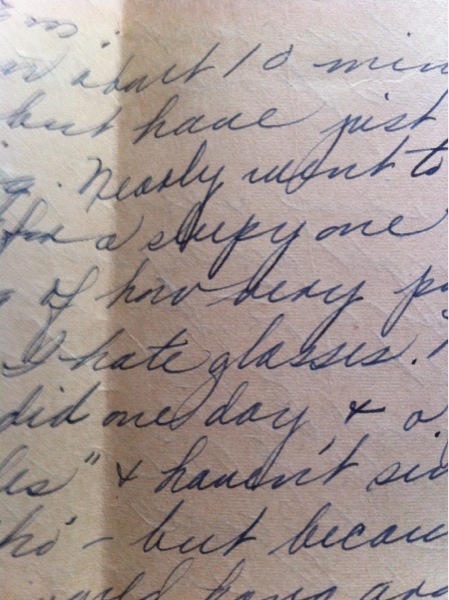 about 10 min
but have just
Nearly went to
for a sleepy one
of how very
I hate glasses.
did one day, & o
les" & haven't sin
tho' - but becau
would hang aro